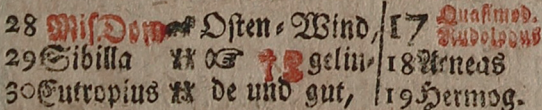 28 Mis Dom Osten-Wind, 17 Quasimod.
Rudolphus
29 Sibilla gelin- 18 Aeneas
30 Eutropius de und gut, 19 Hermog.